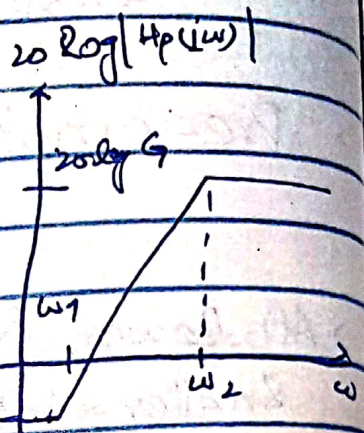 20 log|Hp(jω)|
20log G
ω1
ω2
ω